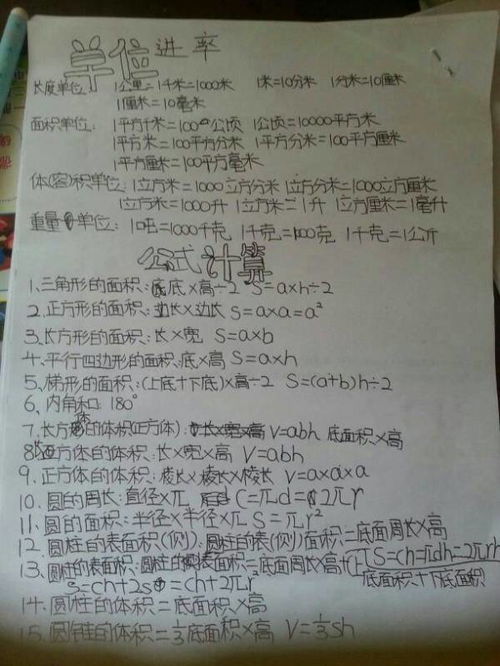 单位进率
长度单位: 1公里=1千米=1000米 1米=10分米 1分米=10厘米
1厘米=10毫米
面积单位: 1平方千米=100公顷 1公顷=10000平方米
1平方米=100平方分米 1平方分米=100平方厘米
1平方厘米=100平方毫米
体(容)积单位: 1立方米=1000立方分米 1立方分米=1000立方厘米
1立方米=1000升 1立方米=1升 1立方厘米=1毫升
重量单位: 1吨=1000千克 1千克=1000克 1千克=1公斤
公式计算
1、三角形的面积: 底×高÷2 S=a×h÷2
2、正方形的面积: 边长×边长 S=a×a=a²
3、长方形的面积: 长×宽 S=a×b
4、平行四边形的面积: 底×高 S=a×h
5、梯形的面积: (上底+下底)×高÷2 S=(a+b)h÷2
6、内角和: 180°
7、长方体的体积(正方体): 长×宽×高 V=abh 底面积×高
8、长方体的体积: 长×宽×高 V=abh
9、正方体的体积: 棱长×棱长×棱长 V=a×a×a
10、圆的周长: 直径×π C=πd=2πr
11、圆的面积: 半径×半径×π S=πr²
12、圆柱的表面积(侧): 圆柱的表(侧)面积=底面周长×高
13、圆柱的表面积: 圆柱的表面积=底面周长×高+ S=ch=πdh=2πrh
S=ch+2s=ch+2πr² 底面积+下底面积
14、圆柱的体积=底面积×高
15、圆锥的体积=⅓底面积×高 V=⅓sh